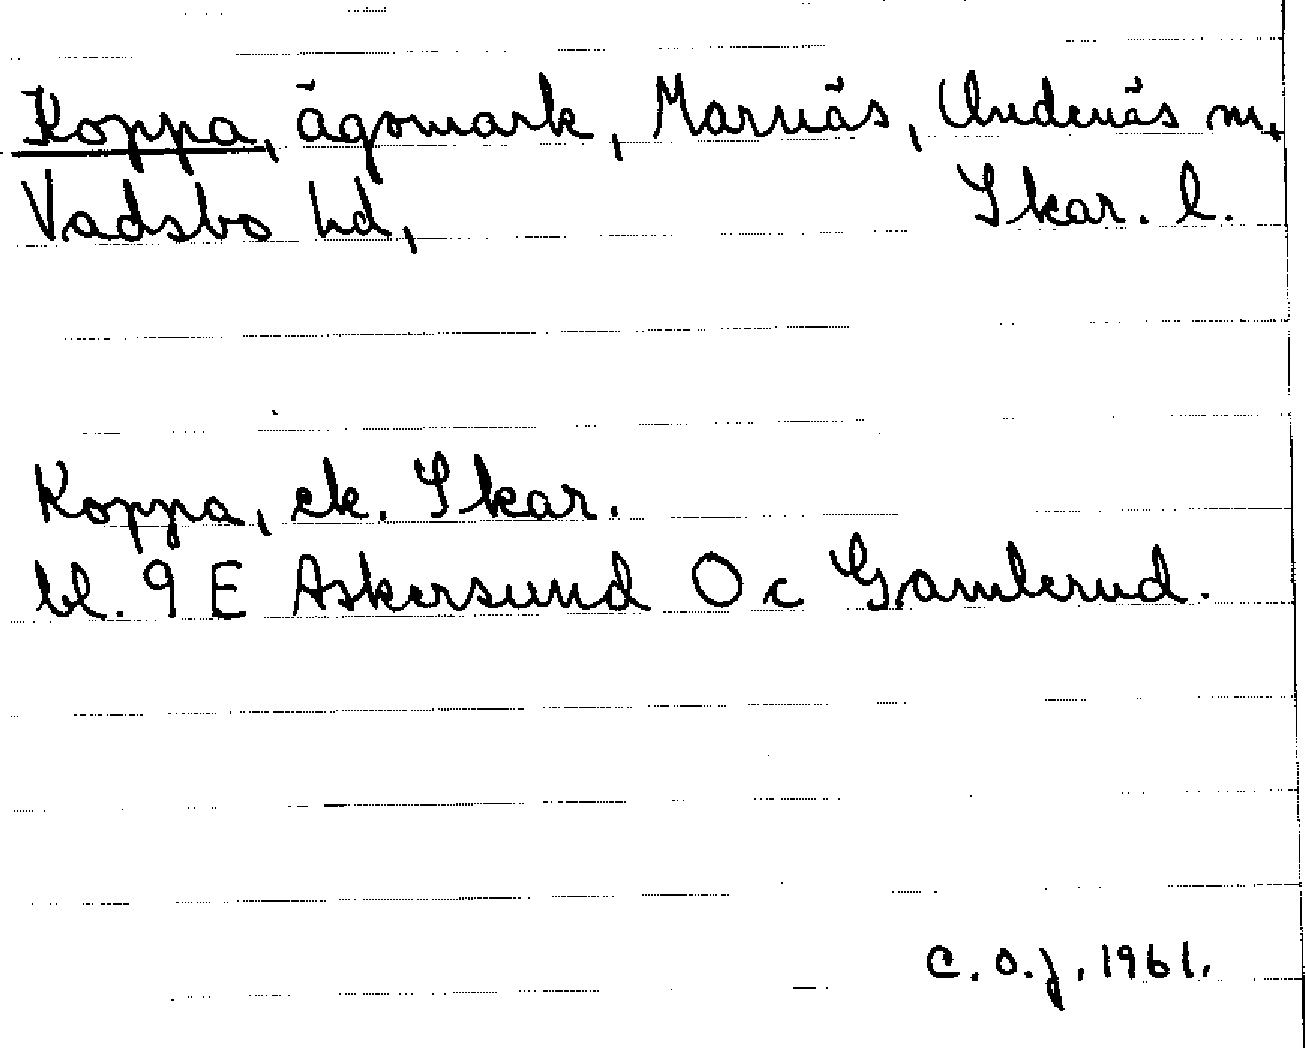 Koppa, ägomark, Marnäs, Undenäs sn,
Vadsbo hd, Skar. l.
Koppa, ek. Skar.
bl. 9 E Askersund O c Gamlerud.
C.O.J. 1961.